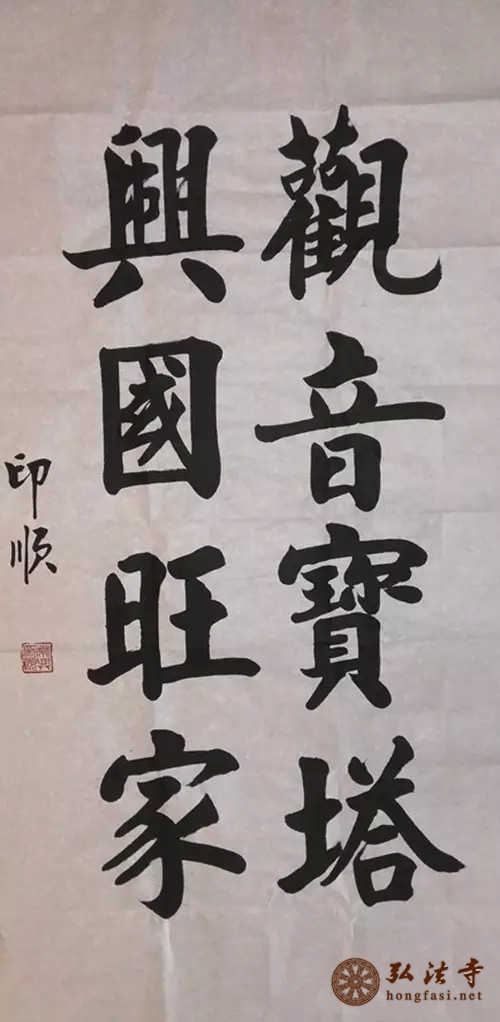 觀音寶塔
興國旺家
印順
弘法寺
hongfasi.net